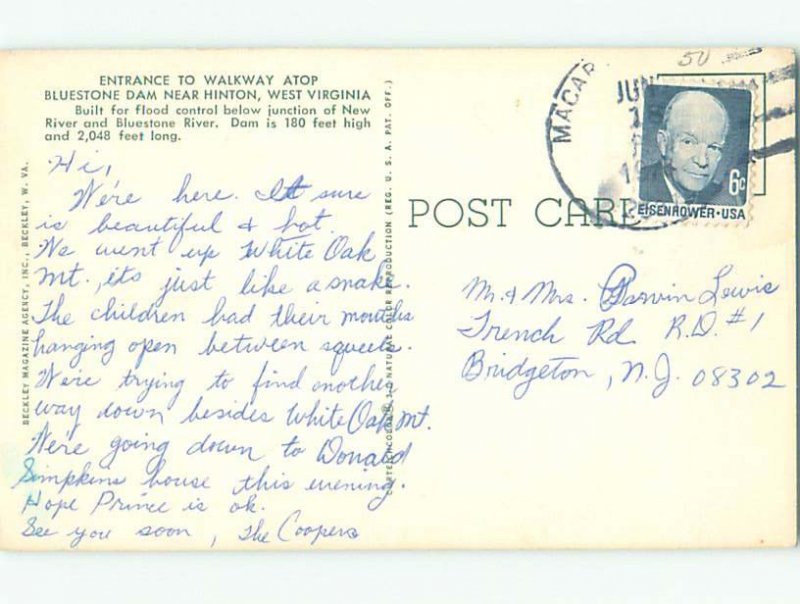 ENTRANCE TO WALKWAY ATOP
BLUESTONE DAM NEAR HINTON, WEST VIRGINIA
Built for flood control below junction of New
River and Bluestone River. Dam is 180 feet high
and 2,048 feet long.
Hi,
We're here. It sure
is beautiful & hot.
We went up White Oak
Mt., its just like a snake.
The children had their mouths
hanging open between squeels.
We're trying to find another
way down besides White Oak Mt.
We're going down to Donald
Simpkins house this evening.
Hope Prince is ok.
See you soon, The Coopers
BECKLEY MAGAZINE AGENCY, INC., BECKLEY, W. VA.
3-D NATURAL COLOR REPRODUCTION (REG. U. S. A. PAT. OFF.)
POST CARD
50
MACAR
JUN
6c
EISENHOWER·USA
Mr. & Mrs. Garvin Lewis
Trench Rd. R.D. #1
Bridgeton, N.J. 08302